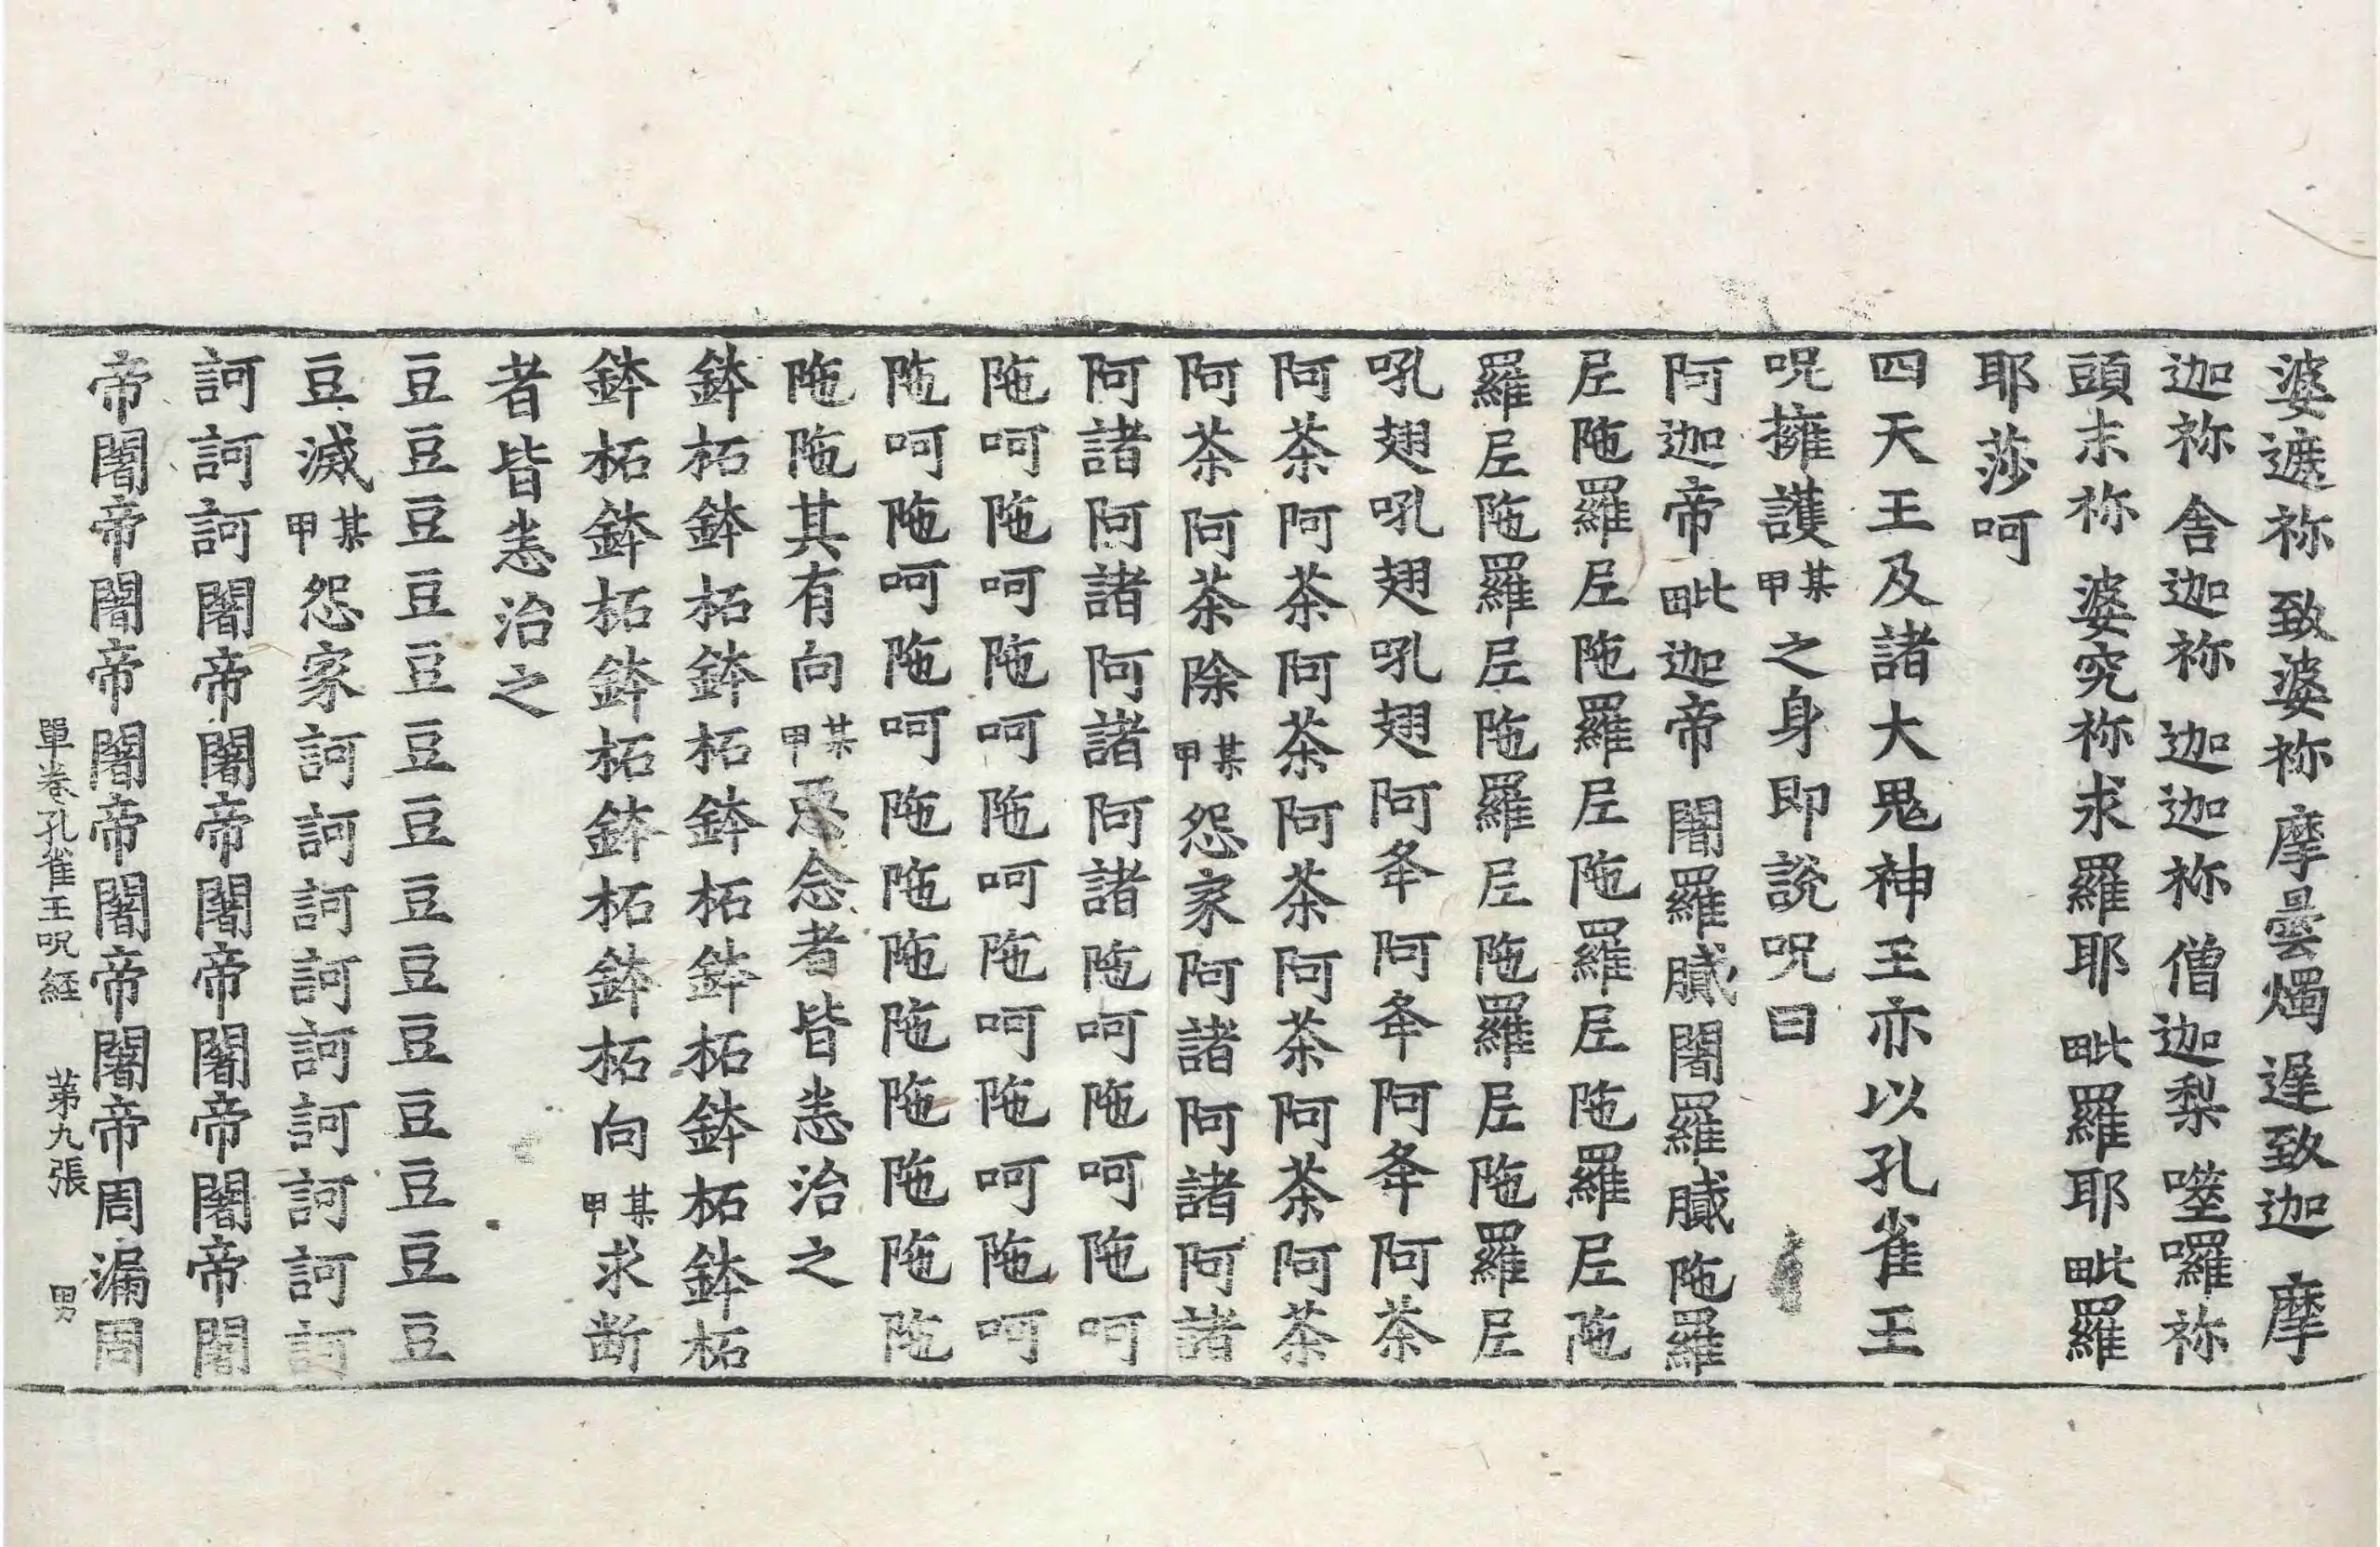 婆遮祢 致婆祢 摩曇燭 遲致迦 摩
迦祢 舎迦祢 迦迦祢 僧迦梨 噬囉祢
頭末祢 婆究祢 求羅耶 毗羅耶 毗羅
耶 莎呵
四天王及諸大鬼神王亦以孔雀王
呪擁護某甲之身即說呪曰
阿迦帝 毗迦帝 闍羅膩 闍羅膩 陁羅
𡰱陁羅𡰱陁羅𡰱陁羅𡰱陁羅𡰱陁
羅𡰱陁羅𡰱陁羅𡰱陁羅𡰱陁羅𡰱
吼翅吼翅吼翅 阿夅 阿夅 阿夅 阿茶
阿茶阿茶阿茶阿茶阿茶阿茶阿茶
阿茶阿茶除某甲怨家阿諸阿諸阿諸
阿諸阿諸阿諸阿諸陁呵陁呵陁呵
陁呵陁呵陁呵陁呵陁呵陁呵陁呵
陁呵陁呵陁呵陁陁陁陁陁陁陁陁
陁陁其有向某甲惡念者皆悉治之
鉢柘鉢柘鉢柘鉢柘鉢柘鉢柘鉢柘
鉢柘鉢柘鉢柘鉢柘鉢柘向某甲求断
者皆悉治之
豆豆豆豆豆豆豆豆豆豆豆豆豆豆
豆滅某甲怨家訶訶訶訶訶訶訶訶訶
訶訶訶闍帝闍帝闍帝闍帝闍帝闍
帝闍帝闍帝闍帝闍帝闍帝周漏周
單卷孔雀王呪経 苐九張 男